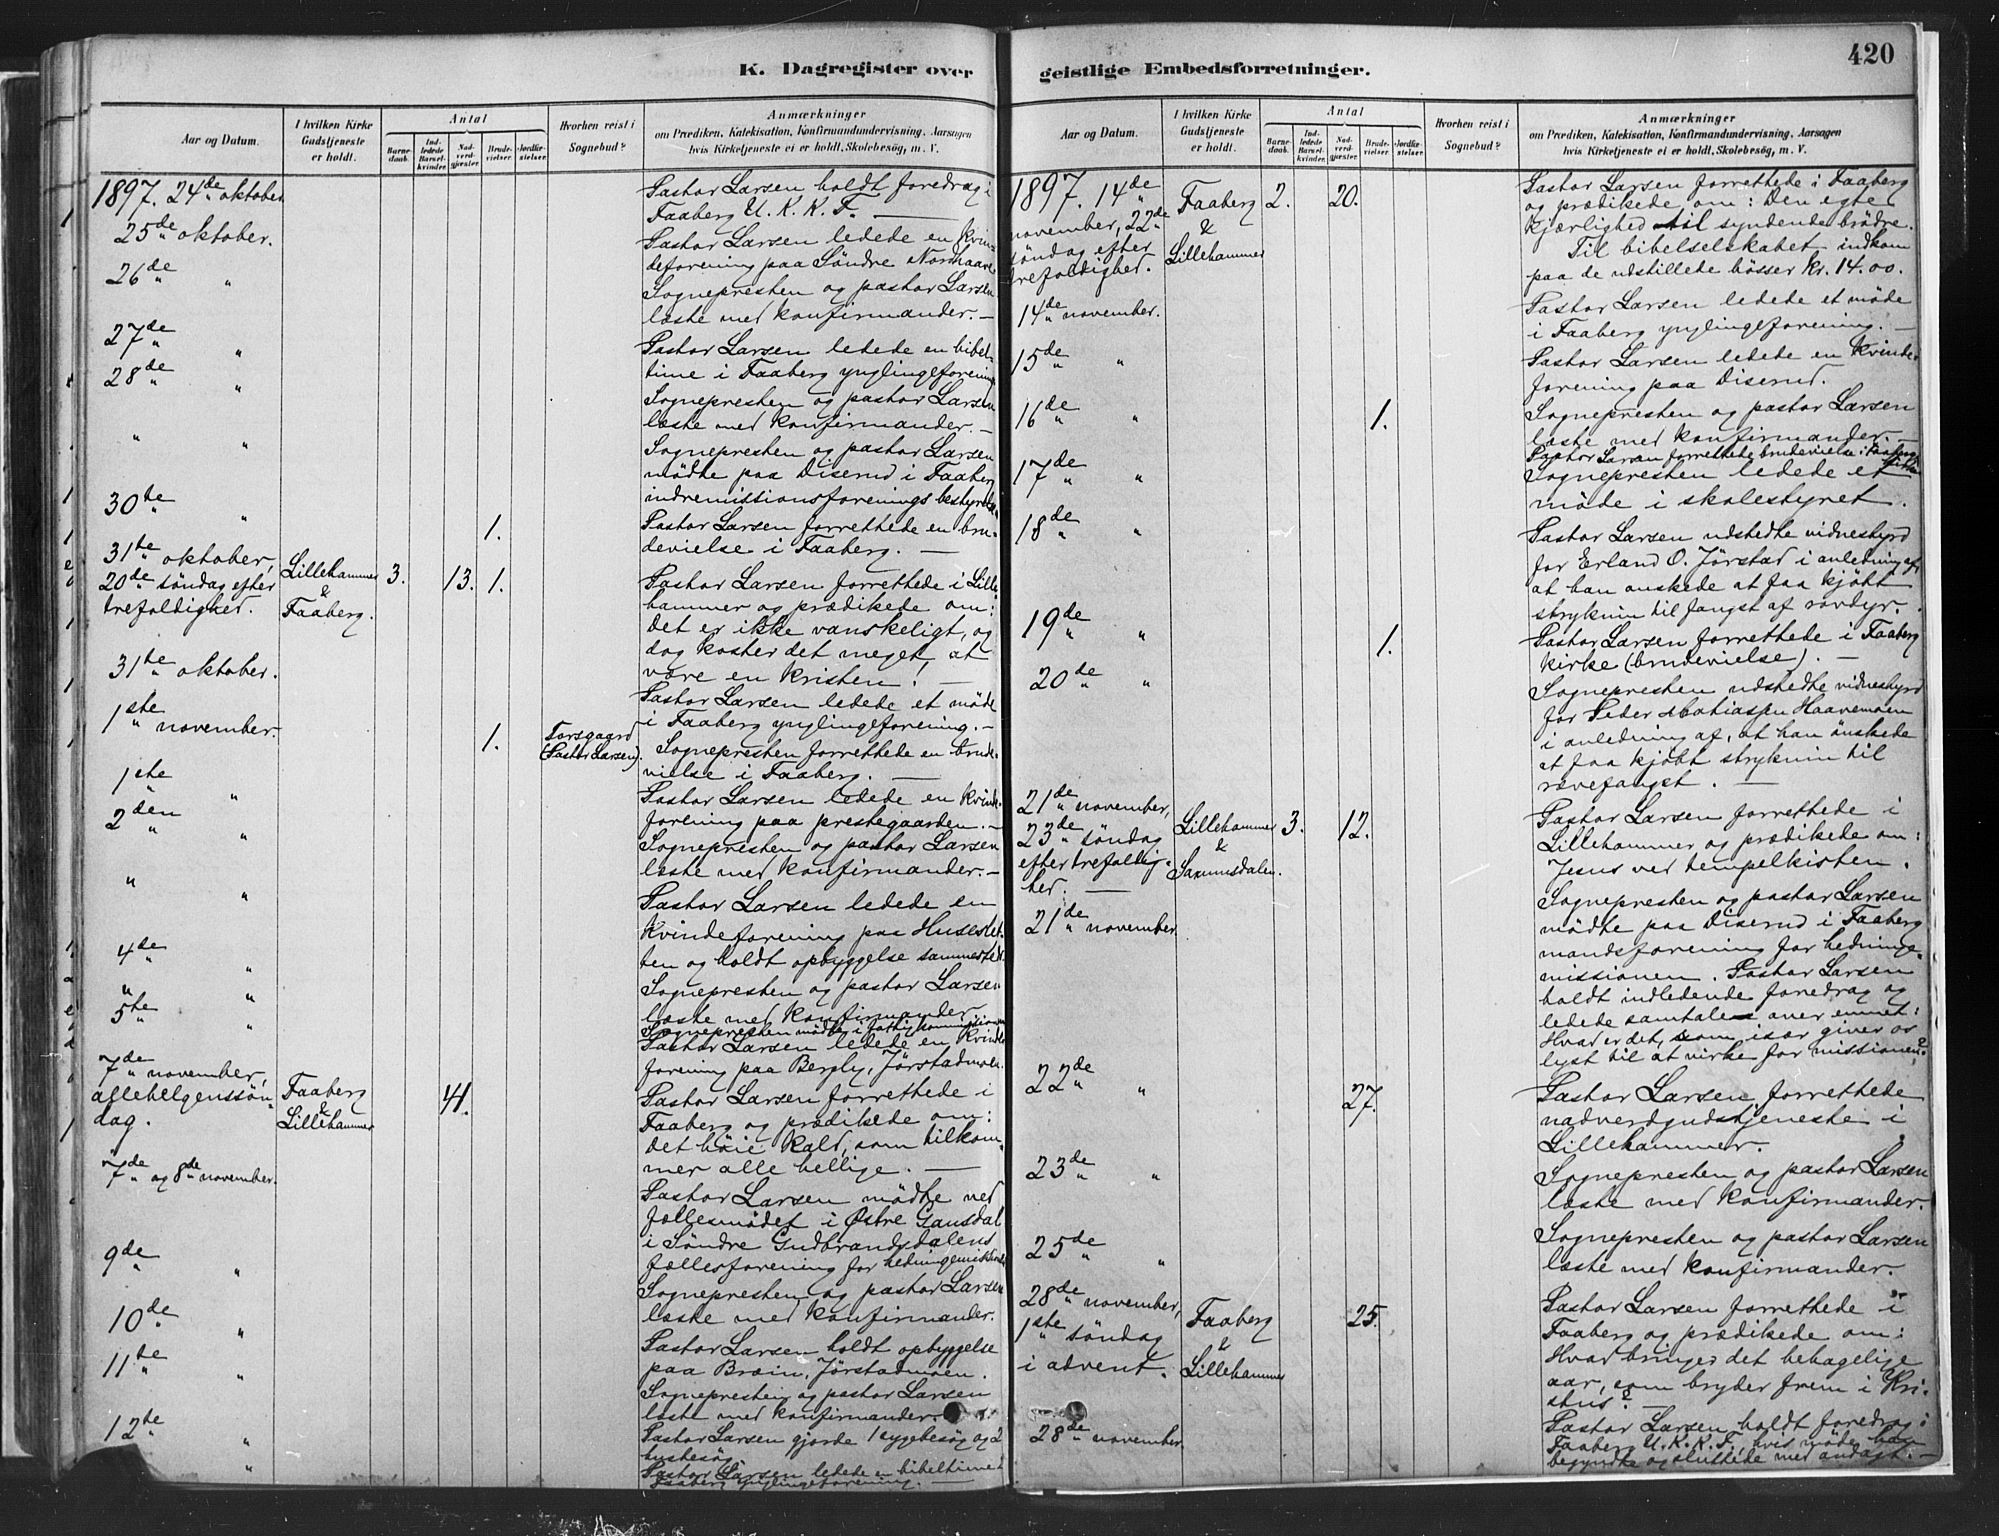 K. Dagregister over
Aar og Datum.
I hvilken Kirke Gudstjeneste er holdt.
Antal
Barne-daab.
Ind-ledede Barsel-kvinder.
Nad-verd-gjæster.
Brude-vielser.
Jordfæ-stelser.
Hvorhen reist i Sognebud?
Anmærkninger
om Prædiken, Katekisation, Konfirmandundervisning, Aarsagen
hvis Kirketjeneste ei er holdt, Skolebesøg, m. V.
1897. 24de oktober.
Pastor Larsen holdt foredrag i
Faaberg U. K. K. F. —
25de oktober.
Pastor Larsen ledede en kvin-
deforening paa Söndre
26de "
Sognepresten og pastor Larsen
læste med konfirmander. —
27de "
Pastor Larsen ledede en bibel-
time i Faaberg ynglingeforening.
28de "
Sognepresten og pastor Larsen
læste med konfirmander. —
" "
Sognepresten og pastor Larsen
mödte paa Diserud i Faaberg
indremissionsforenings bestyrelse.
30te " 1.
Pastor Larsen forrettede en bru-
devielse i Faaberg. —
31te oktober,
20de söndag efter
trefoldighed.
Lillehammer
&
Faaberg.
3. 13. 1.
Pastor Larsen forrettede i Lille-
hammer og prædikede om:
Det er ikke vanskeligt, og
dog koster det meget, at
være en kristen! —
31te oktober.
Pastor Larsen ledede et möde
i Faaberg ynglingeforening. —
1ste november. 1.
Torsgaard
(Pastor Larsen).
Sognepresten forrettede en brude-
vielse i Faaberg. —
1ste "
Pastor Larsen ledede en kvinde-
forening paa prestegaarden. —
2den "
Sognepresten og pastor Larsen
læste med konfirmander. —
" "
Pastor Larsen ledede en
kvindeforening paa
og holdt opbyggelse sammested.
4de "
Sognepresten og pastor Larsen
læste med konfirmander.
" "
Sognepresten mödte i fattigkommissionen
5te "
Pastor Larsen ledede en kvinde-
forening paa Bergly, Jörstadmoen.
7de november,
allehelgenssön-
dag.
Faaberg
&
Lillehammer
41.
Pastor Larsen forrettede i
Faaberg og prædikede om:
det höie kald, som tilkom-
mer alle hellige. —
7de og 8de november.
Pastor Larsen mödte ved
fællesmödet i Østre Gausdal
i Söndre Gudbrandsdalens
fællesforening for hedningemissionen
9de "
Sognepresten og pastor Larsen
læste med konfirmander.
10de "
Pastor Larsen holdt opbyggelse
paa Bræin, Jörstadmoen.
11te "
Sognepresten og pastor Larsen
læste med konfirmander.
12te "
Pastor Larsen gjorde 1 sygebesög og 2
husbesög.
"
Pastor Larsen ledede en bibeltime i
Faaberg ynglingeforening. —
geistlige Embedsforretninger.
420
Aar og Datum.
I hvilken Kirke Gudstjeneste er holdt.
Antal
Barne-daab.
Ind-ledede Barsel-kvinder.
Nad-verd-gjæster.
Brude-vielser.
Jordfæ-stelser.
Hvorhen reist i Sognebud?
Anmærkninger
om Prædiken, Katekisation, Konfirmandundervisning, Aarsagen
hvis Kirketjeneste ei er holdt, Skolebesøg, m. V.
1897. 14de
november, 22de
söndag efter
trefoldighed.
Faaberg
&
Lillehammer
2. 20.
Pastor Larsen forrettede i Faaberg
og prædikede om: Den egte
kjærlighed til syndende brödre.
Til bibelselskabet indkom
paa de udstillede bösser kr. 14.00.
14de november.
Pastor Larsen ledede et möde
i Faaberg ynglingeforening. —
15de "
Pastor Larsen ledede en kvinde-
forening paa Diserud.
16de " 1.
Sognepresten og pastor Larsen
læste med konfirmander. —
Pastor Larsen forrettede brudevielse i Faaberg
kirke
17de "
Sognepresten ledede et
möde i skolestyret.
18de "
Pastor Larsen udstedte vidnesbyrd
for Erland O. Jörstad i anledning af,
at han önskede at faa kjöbt
stryknin til fangst af rovdyr.
19de " 1.
Pastor Larsen forrettede i Faaberg
kirke (brudevielse). —
20de "
Sognepresten udstedte vidnesbyrd
for Peder Mathiassen Haavemoen
i anledning af, at han önskede
at faa kjöbt stryknin til
rævefangst. —
21de november,
23de söndag
efter trefoldig-
hed. —
Lillehammer
&
Saxumsdalen.
3. 12.
Pastor Larsen forrettede i
Lillehammer og prædikede om:
Jesus ved tempelkisten.
21de november
Sognepresten og pastor Larsen
mödte paa Diserud i Faaberg
mandsforening for hedninge-
missionen. Pastor Larsen
holdt indledende foredrag og
ledede samtalen over emnet:
Hvad er det, som især giver os
lyst til at virke for missionen?
22de " 27.
Pastor Larsen forrettede
nadverdgudstjeneste i
Lillehammer.
23de "
Sognepresten og pastor Larsen
læste med konfirmander.
25de "
Sognepresten og pastor Larsen
læste med konfirmander.
28de november,
1ste söndag
i advent.
Faaberg
&
Lillehammer
25.
Pastor Larsen forrettede i
Faaberg og prædikede om:
Hvad bringer det behagelige
aar, som bryder frem i Kri-
stus?
28de november
Pastor Larsen holdt foredrag i
Faaberg U. K. K. F., hvis möde han
begyndte og sluttede med andagt. —